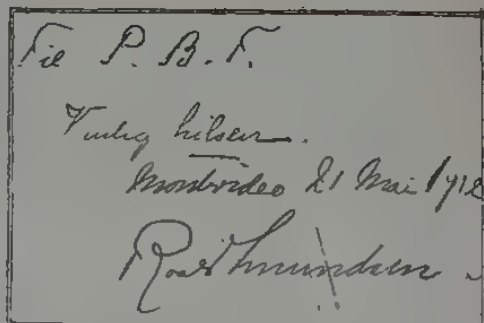 Til P. B. F.
Venlig hilsen.
Montevideo 21 Mai 1912
Roald Amundsen